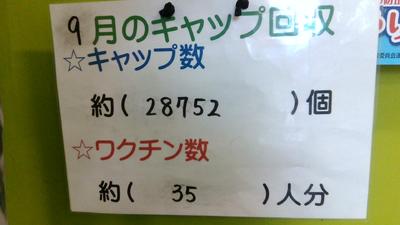 9月のキャップ回収
☆キャップ数
約( 28752 )個
☆ワクチン数
約( 35 )人分